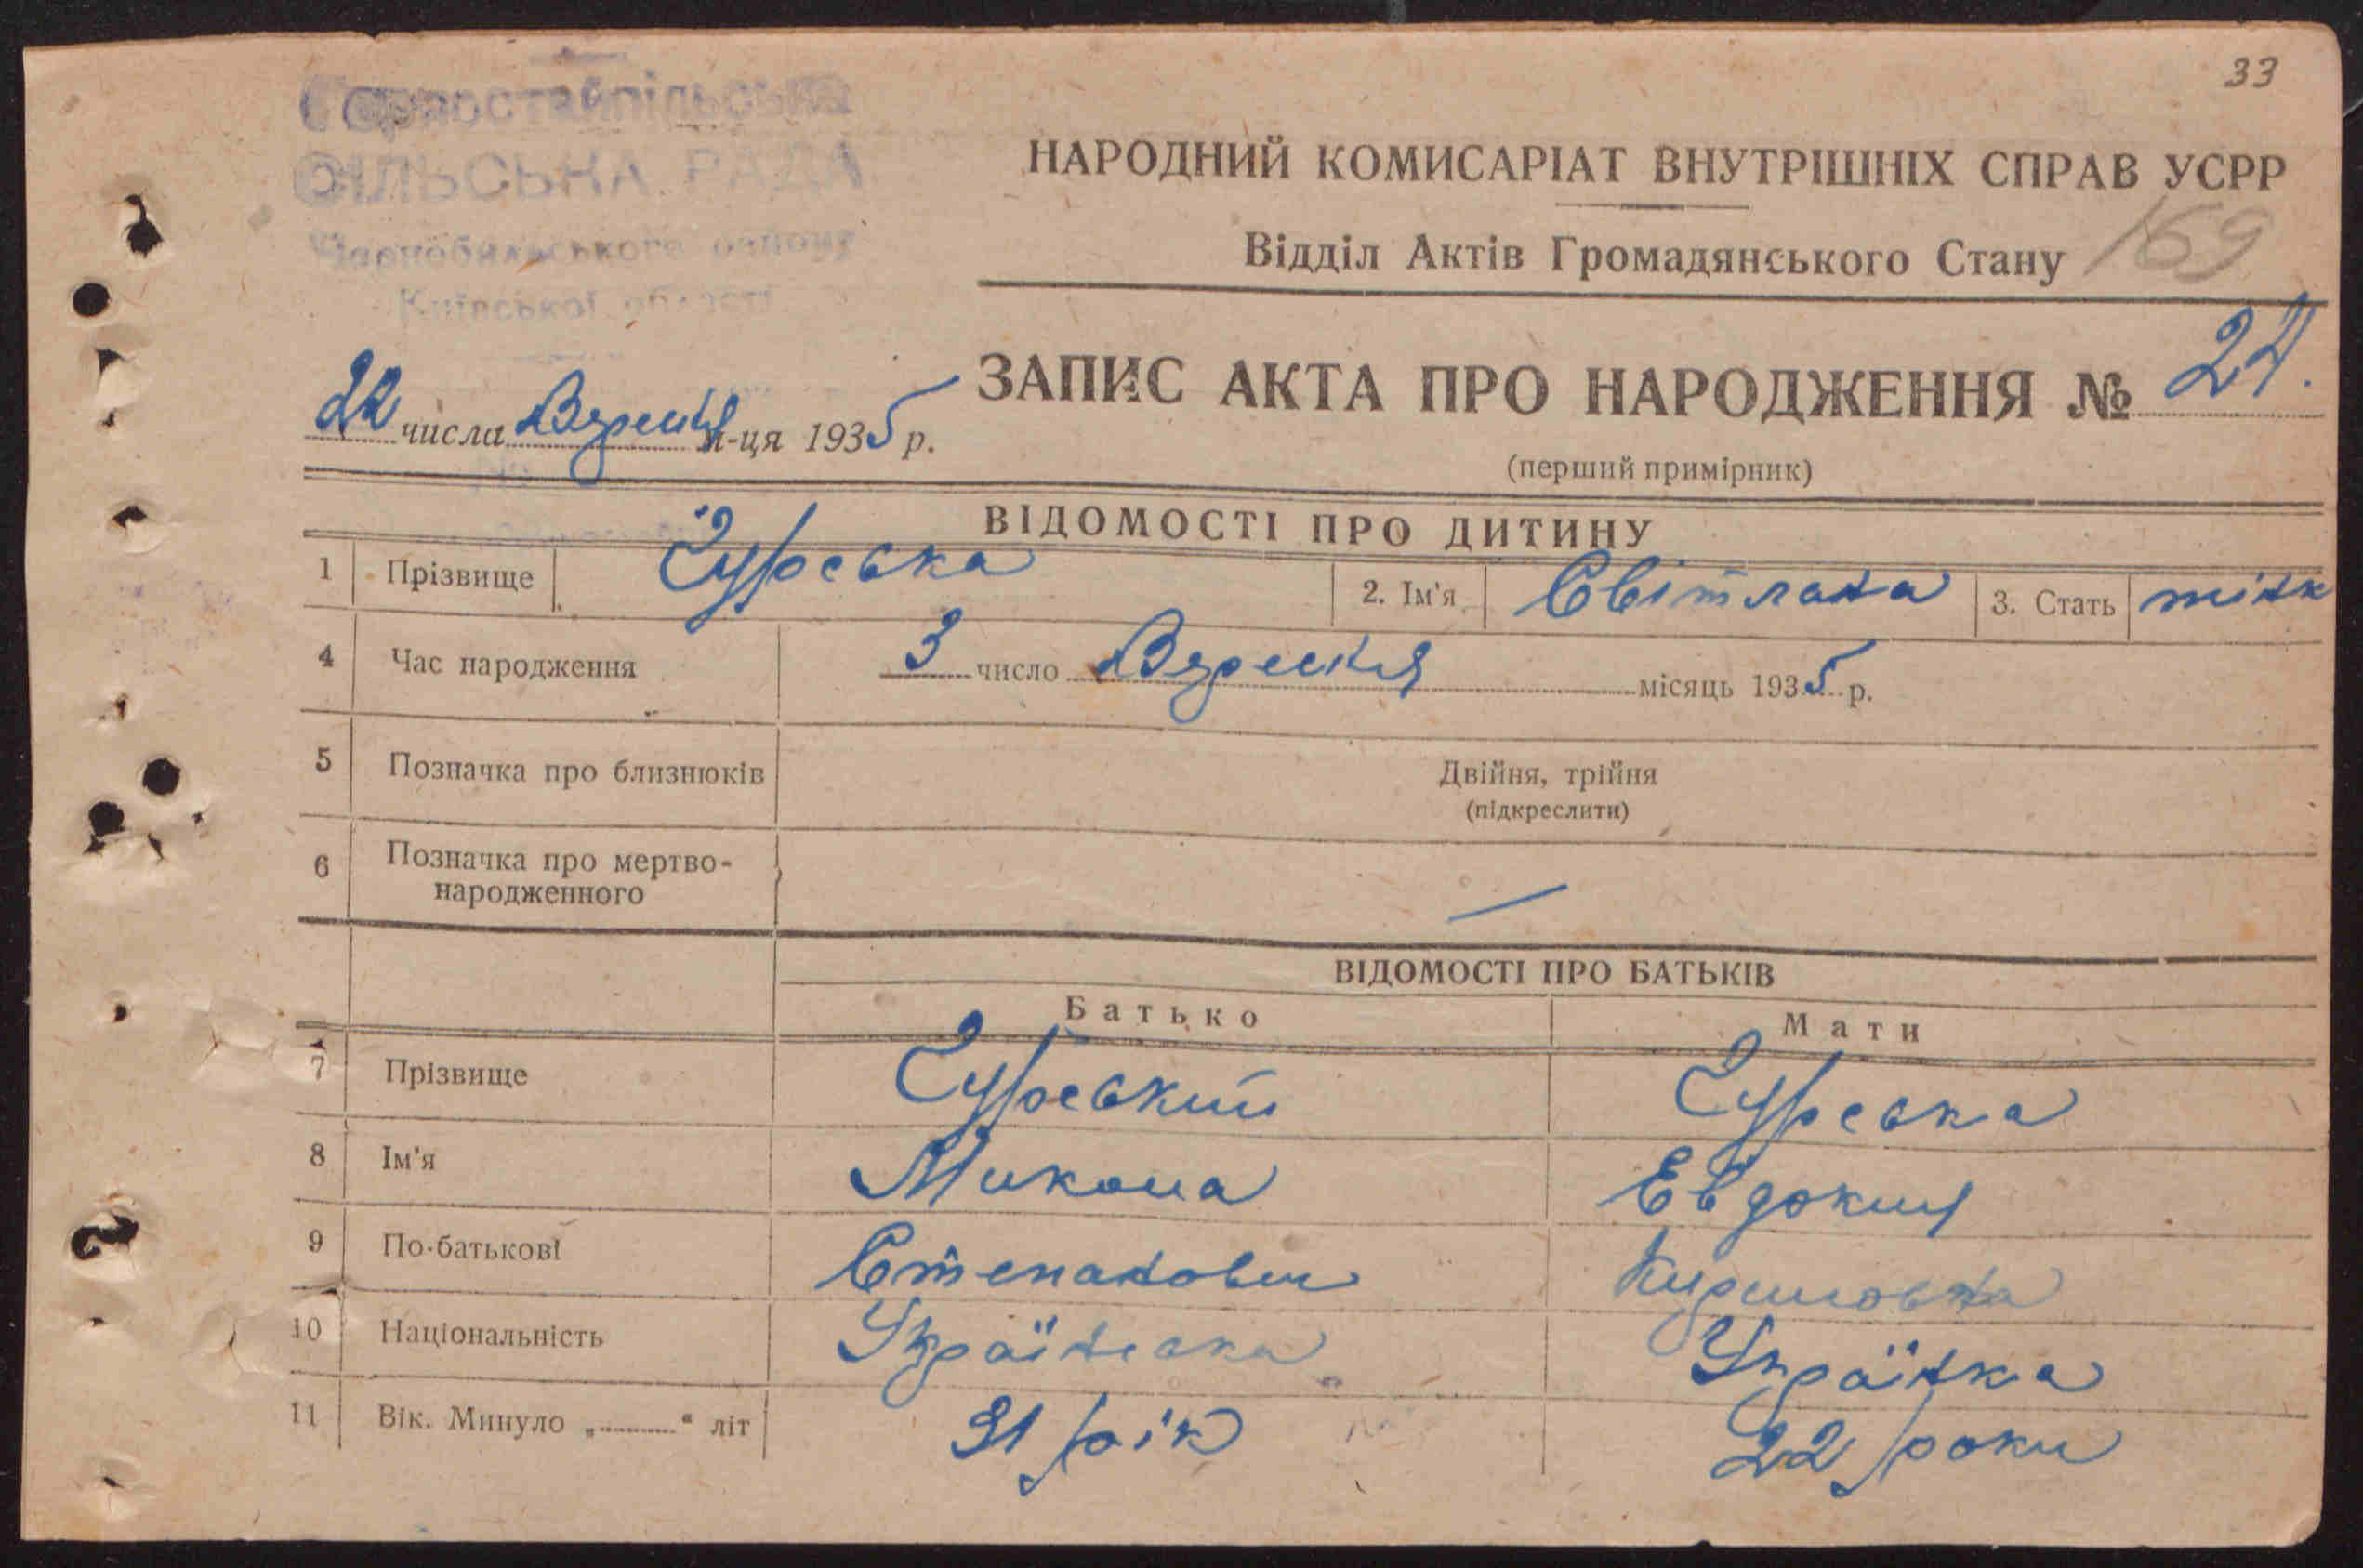 33
Горностайпільська
СІЛЬСЬКА РАДА
Чорнобильського району
Київської області
НАРОДНИЙ КОМИСАРІАТ ВНУТРІШНІХ СПРАВ УСРР
Відділ Актів Громадянського Стану 169
ЗАПИС АКТА ПРО НАРОДЖЕННЯ №
22 числа Вересня м-ця 1935 р.
(перший примірник)
ВІДОМОСТІ ПРО ДИТИНУ
1 Прізвище 2. Ім'я Світлана 3. Стать жінк
4 Час народження 3 число Вересня місяць 1935 р.
5 Позначка про близнюків Двійня, трійня
(підкреслити)
6 Позначка про мертво-
народженного —
ВІДОМОСТІ ПРО БАТЬКІВ
Батько Мати
7 Прізвище
8 Ім'я Микола Евдокия
9 По-батькові Степанович
10 Національність Українська Українка
11 Вік. Минуло „ " літ 31 рік 22 роки